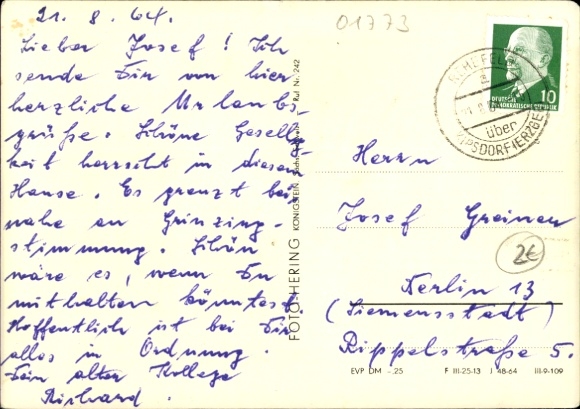 21. 8. 64.
Lieber Josef! Ich
sende Dir von hier
herzliche Urlaubs-
grüße. Schöne Gesellig-
keit herrscht in diesem
Hause. Es grenzt bei-
nahe an Grinzing-
stimmung. Schön
wäre es, wenn Du
mithalten könntest.
Hoffentlich ist bei Dir
alles in Ordnung.
Dein alter Kollege
Richard.
FOTO-HERING KÖNIGSTEIN Ruf Nr. 242
01773
DEUTSCHE
DEMOKRATISCHE REPUBLIK
10
über
Herrn
Josef
2€
Berlin 13
(Siemensstadt)
Rippelstraße 5.
EVP DM -,25 F III-25-13 J 48-64 III-9-109